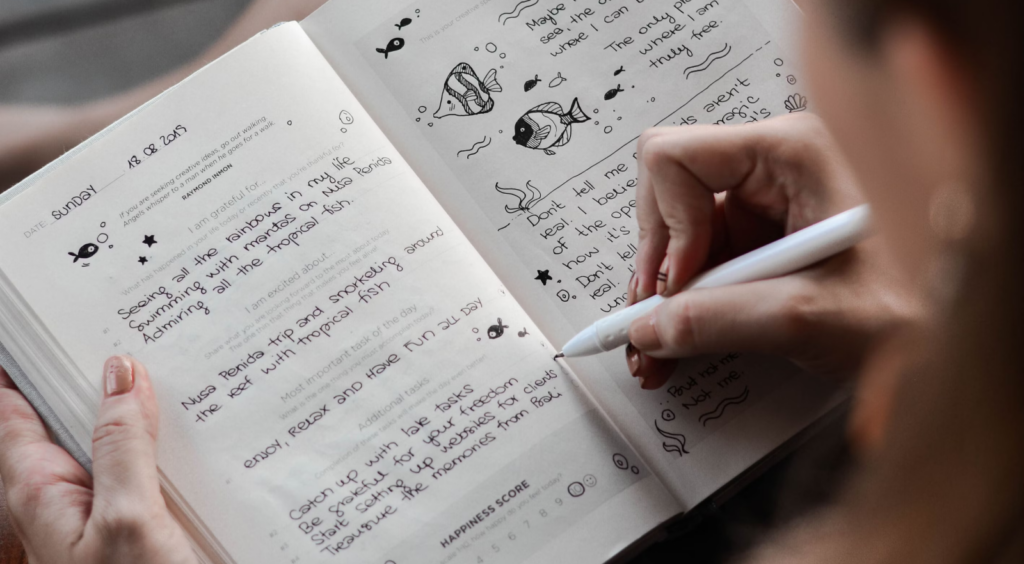 DATE: SUNDAY 18 08 2019
If you are seeking creative ideas, go out walking.
Angels whisper to a man when he goes for a walk.
RAYMOND INMON
I am grateful for...
What happened in your life today or recently that you're thankful for?
Seeing all the rainbows in my life
Swimming with mantas on Nusa Penida
Admiring all the tropical fish.
I am excited about...
Nusa Penida trip and snorkeling around
the reef with tropical fish
Most important task of the day
enjoy, relax and have fun all day
Additional tasks
Catch up with late tasks
Be grateful for your freedom
Start setting up websites for clients
Treasure the memories from Bali
HAPPINESS SCORE
4 5 6 7 8 9
This is your creative
Maybe
sea, the o
where I can b
The only pla
where I am
truly free.
aren't
Don't tell me
real. I believe
of the ope
how it's
Don't tell
real.
But not me.
Not me.